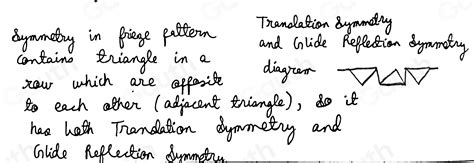 Symmetry in friege pattern
contains triangle in a
row which are opposite
to each other (adjacent triangle), so it
has both Translation Symmetry and
Glide Reflection Symmetry
Translation Symmetry
and Glide Reflection Symmetry
diagram